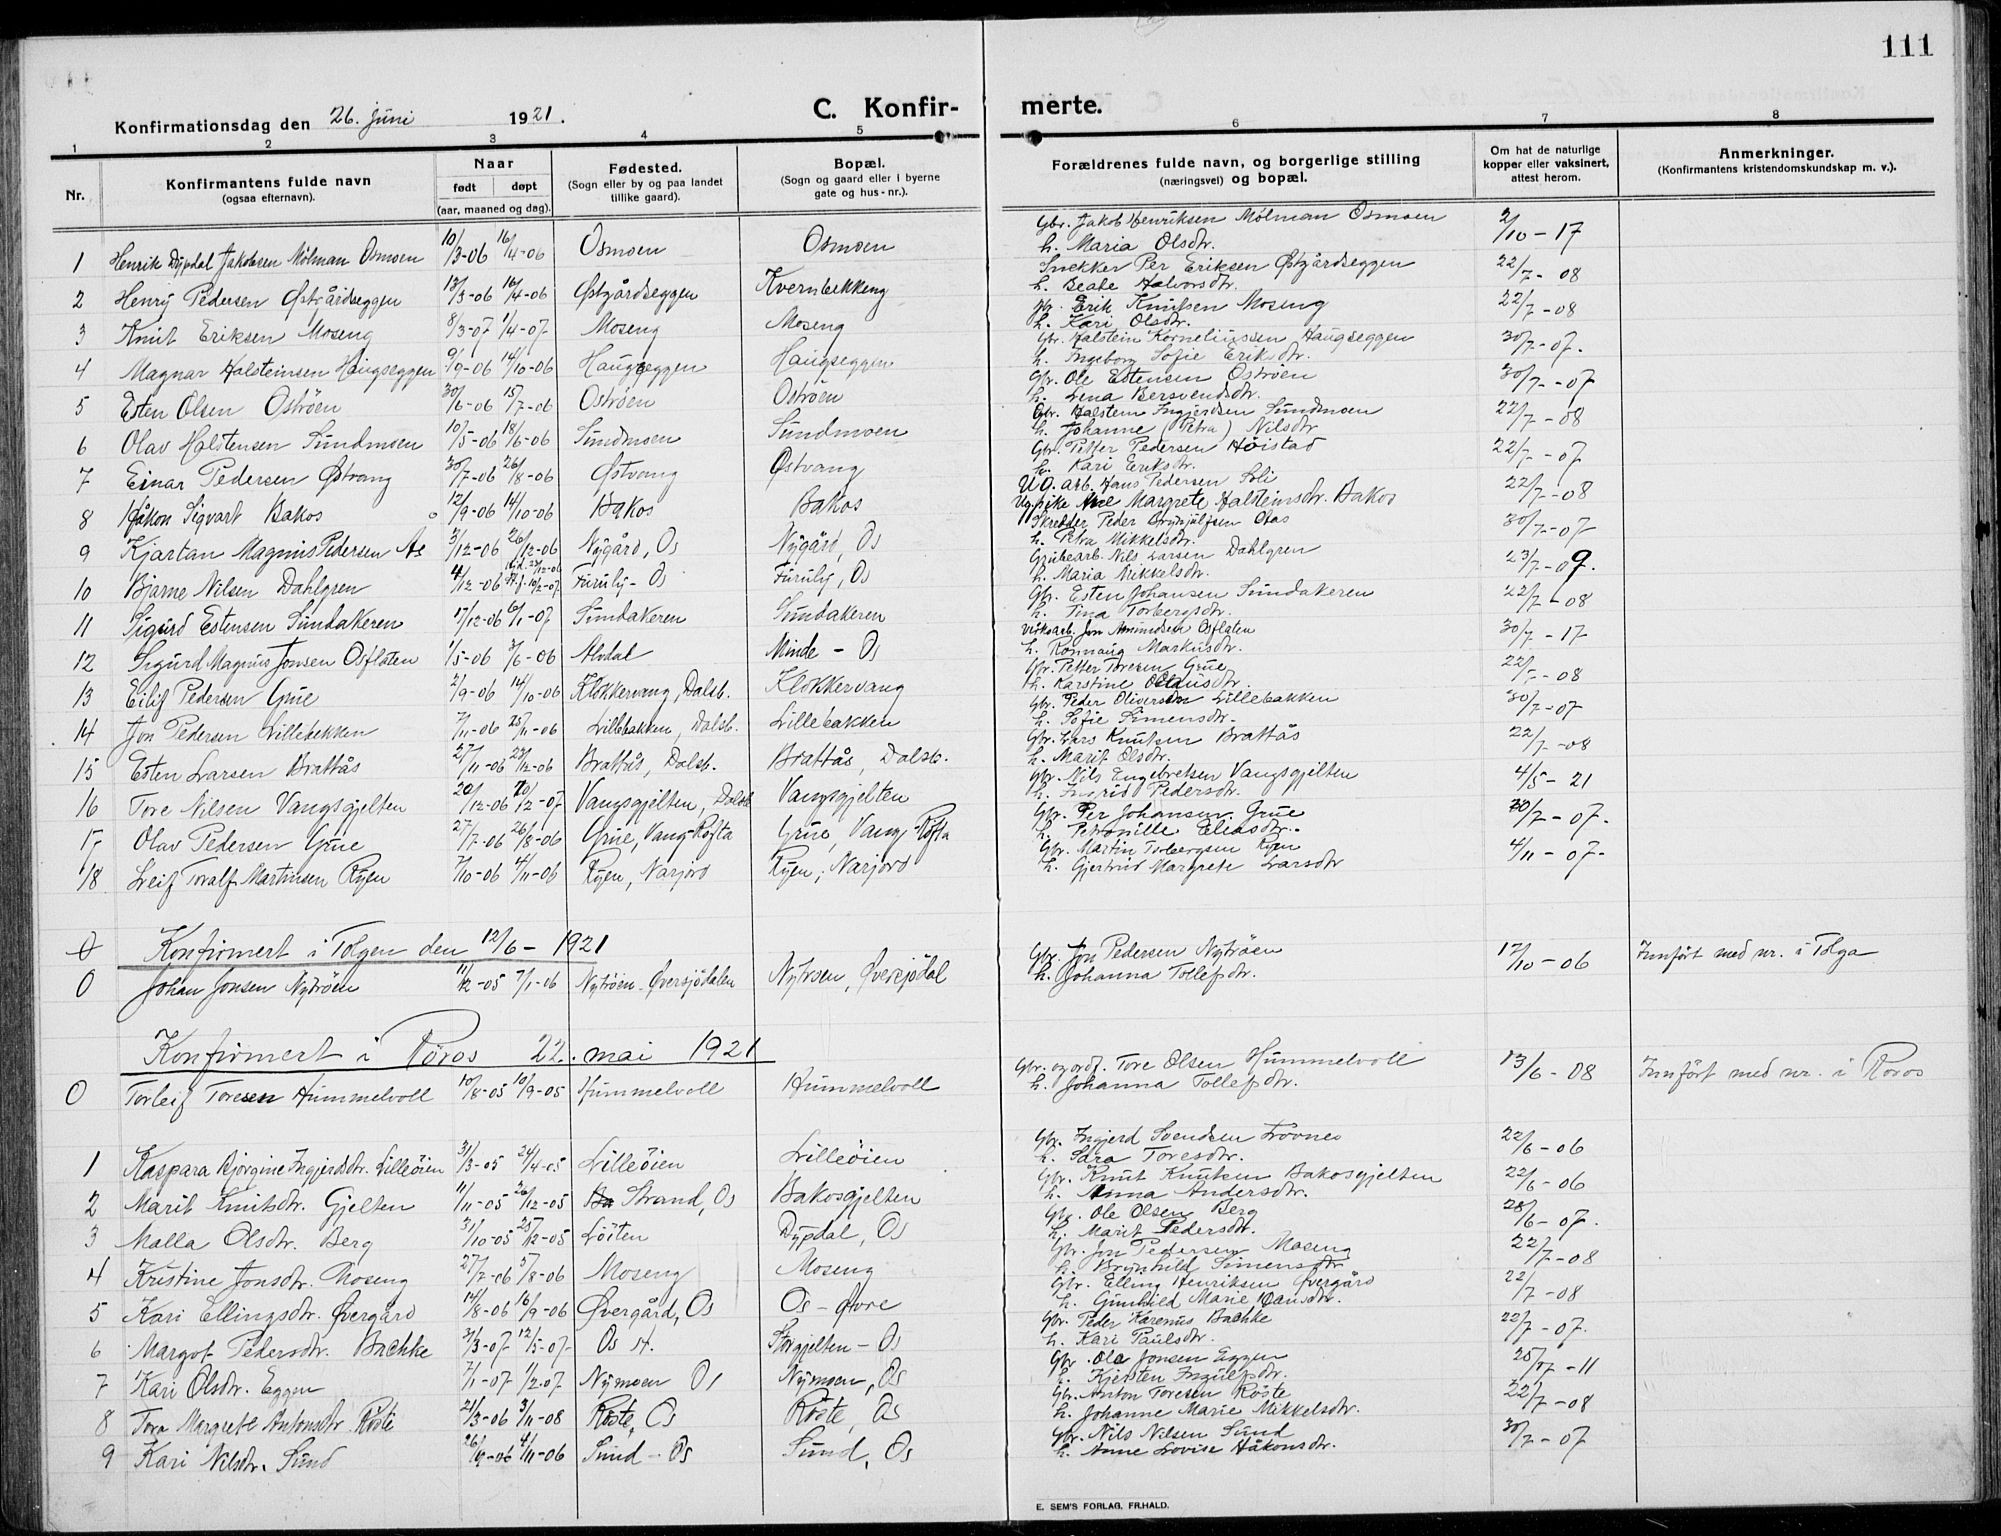 111
Konfirmationsdag den 26. juni 1921.
C. Konfir- merte.
1 2 3 4 5 6 7 8
Nr.
Konfirmantens fulde navn
(ogsaa efternavn).
Naar
født døpt
(aar, maaned og dag).
Fødested.
(Sogn eller by og paa landet
tillike gaard).
Bopæl.
(Sogn og gaard eller i byerne
gate og hus-nr.).
Forældrenes fulde navn, og borgerlige stilling
(næringsvei) og bopæl.
Om hat de naturlige
kopper eller vaksinert,
attest herom.
Anmerkninger.
(Konfirmantens kristendomskundskap m. v.).
1 Henrik Dypdal Jakobsen Mølman Osmoen 10/3-06 16/4-06 Osmoen Osmoen Gbr. Jakob Henriksen Mølman Osmoen 2/10-17
h. Maria Olsdtr.
2 Henry Pedersen Østgårdseggen 13/3-06 16/4-06 Østgårdseggen Kvernbekkeng Snekker Per Eriksen Østgårdseggen 22/7-08
h. Beate Halvorsdtr.
3 Knut Eriksen Moseng 8/3-07 1/4-07 Moseng Moseng Gbr. Erik Knutsen Moseng 22/7-08
h. Kari Olsdtr.
4 Magnar Halsteinsen Haugseggen 9/9-06 14/10-06 Haugseggen Haugseggen Gbr. Halstein Korneliussen Haugseggen 30/7-07.
h. Ingeborg Sofie Eriksdtr.
5 Esten Olsen Oströen 30/6-06 15/7-06 Oströen Oströen Gbr. Ole Estensen Oströen 30/7-07
h. Lina Bersvendsdtr.
6 Olav Halstensen Sundmoen 10/5-06 18/6-06 Sundmoen Sundmoen Gbr. Halstein Ingjerdsen Sundmoen 22/7-08
h. Johanne (Petra) Nilsdtr
7 Einar Pedersen Østvang 30/7-06 26/8-06 Østvang Østvang Gbr. Petter Pedersen Høistad 22/7-07
h. Kari Eriksdtr.
8 Håkon Sigvart Bakos 12/9-06 14/10-06 Bakos Bakos Ug. arb. Hans Pedersen Soli 22/7-08
Ug. pike Ane Margrete Halsteinsdtr. Bakos
9 Kjartan Magnus Pedersen As 3/12-06 26/12-06 Nygård, Os Nygård, Os Skredder Peder Brynjulfsen Otas 30/7-07
h. Petra Mikkelsdtr.
10 Bjarne Nilsen Dahlgren 4/12-06 Furuly-Os Furuly, Os Grubearb. Nils Larsen Dahlgren 23/7-09.
h. Maria Mikkelsdtr.
11 Sigurd Estensen Sundakeren 17/12-06 6/1-07 Sundakeren Sundakeren Gbr. Esten Johansen Sundakeren 22/7-08
h. Tina Torbergsdtr.
12 Sigurd Magnus Jonsen Osflaten 1/5-06 3/6-06 Alvdal Minde - Os Virksarb. Jon Amundsen Osflaten 30/7-17
h. Rønnaug Markusdtr.
13 Eilif Pedersen Grue 2/9-06 14/10-06 Klokkervang, Dalsb. Klokkervang Gbr. Petter Toresen Grue 22/7-08
h. Karstine Olausdtr.
14 Jon Pedersen Lillebekken 7/11-06 25/11-06 Lillebakken, Dalsb. Lillebakken Gbr. Peder Oliversen Lillebakken 30/7-07
h. Sofie Simensdtr.
15 Esten Larsen Brattås 27/11-06 23/12-06 Brattås, Dalsb. Brattås, Dalsb. Gbr. Lars Knutsen Brattås 22/7-08
h. Marit Olsdtr.
16 Tore Nilsen Vangsgjelten 20/12-06 20/2-07 Vangsgjelten, Dalsb Vangsgjelten Gbr. Nils Engebretsen Vangsgjelten 4/5-21
h. Ingrid Pedersdtr.
17 Olav Pedersen Grue 27/7-06 26/8-06 Grue, Vang-Røfta Grue, Vang-Røfta Gbr. Per Johansen Grue 30/7-07.
h. Petronille Eliasdtr.
18 Leif Toralf Martinsen Ryen 7/10-06 4/11-06 Ryen, Narjord Ryen, Narjord Gbr. Martin Torbergsen Ryen 4/11-07.
h. Gjertrud Margrete Larsdtr
0 Konfirmert i Tolgen den 12/6-1921
0 Johan Jonsen Nytröen 11/12-05 7/1-06 Nytröen-Øversjödalen Nytröen, Øversjödal Gbr. Jon Pedersen Nytröen 17/10-06 Innfört med nr. i Tolga
h. Johanna Tollefsdtr.
Konfirmert i Röros 22. mai 1921
0 Torleif Toresen Hummelvoll 10/8-05 10/9-05 Hummelvoll Hummelvoll Gbr. og ordf. Tore Olsen Hummelvoll 13/6-08 Innfört med nr. i Röros
h. Johanna Tollefsdtr.
1 Kaspara Bjørgine Ingjerdsdtr. Lilleöien 31/3-05 24/4-05 Lilleöien Lilleöien Gbr. Ingjerd Svendsen Trones 22/6-06
h. Sara Toresdtr.
2 Marit Knutsdtr. Gjelten 11/11-05 26/12-05 Strand, Os Bakosgjelten Gbr. Knut Knutsen Bakosgjelten 22/6-06
h. Anna Andersdtr.
3 Malla Olsdtr. Berg 31/10-05 25/12-05 Löiten Dypdal, Os Gbr. Ole Olsen Berg 28/6-07.
h. Marit Pedersdtr.
4 Kristine Jonsdtr. Moseng 27/7-06 5/8-06 Moseng Moseng Gbr. Jon Pedersen Moseng 22/7-08
h. Brynhild Simensdtr
5 Kari Ellingsdtr. Øvergård 14/8-06 16/9-06 Øvergård, Os Os - øvre Gbr. Elling Henriksen Øvergård 22/7-08
h. Gunhild Marie Hansdtr.
6 Margot Pedersdtr. Bachke 31/3-07 12/5-07 Os st. Storgjelten - Os Gbr. Peder Karenus Bachke 22/7-07.
h. Kari Paulsdtr.
7 Kari Olsdtr. Eggen 7/1-07 1/2-07 Nymoen Os Nymoen, Os Gbr. Ole Jonsen Eggen 25/7-11
h. Kjersten Ingulfsdtr.
8 Tora Margrete Antonsdtr. Röste 21/3-06 3/11-08 Röste, Os Röste, Os Gbr. Anton Toresen Röste 22/7-08
h. Johanne Marie Mikkelsdtr.
9 Kari Nilsdtr. Sund 26/9-06 4/11-06 Sund - Os Sund, Os Gbr. Nils Nilsen Sund 30/7-07
h. Anne Lovise Håkonsdtr.
E. SEM'S FORLAG, FR.HALD.